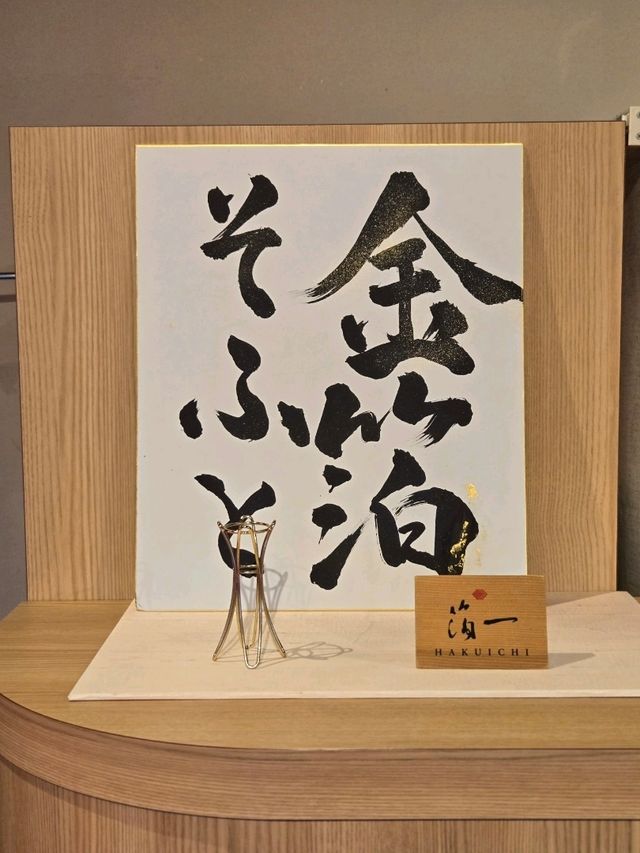 金箔
そふと
箔一
HAKUICHI